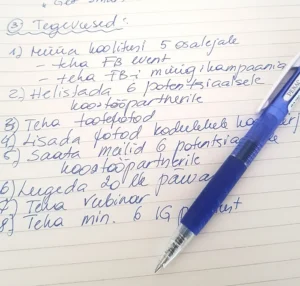 ③ Tegevused:
1) Müüa koolitusi 5 osalejale
- teha FB event
- teha FB-i müügikampaania
2) Helistada 6 potentsiaalsele
koostööpartnerile
3) Teha tootefotod
4) Lisada fotod kodulehele
5) Saata meilid 6
koostööpartnerile
6) Lugeda 20 lk päevas
7) Teha webinar
8) Teha min. 6 IG